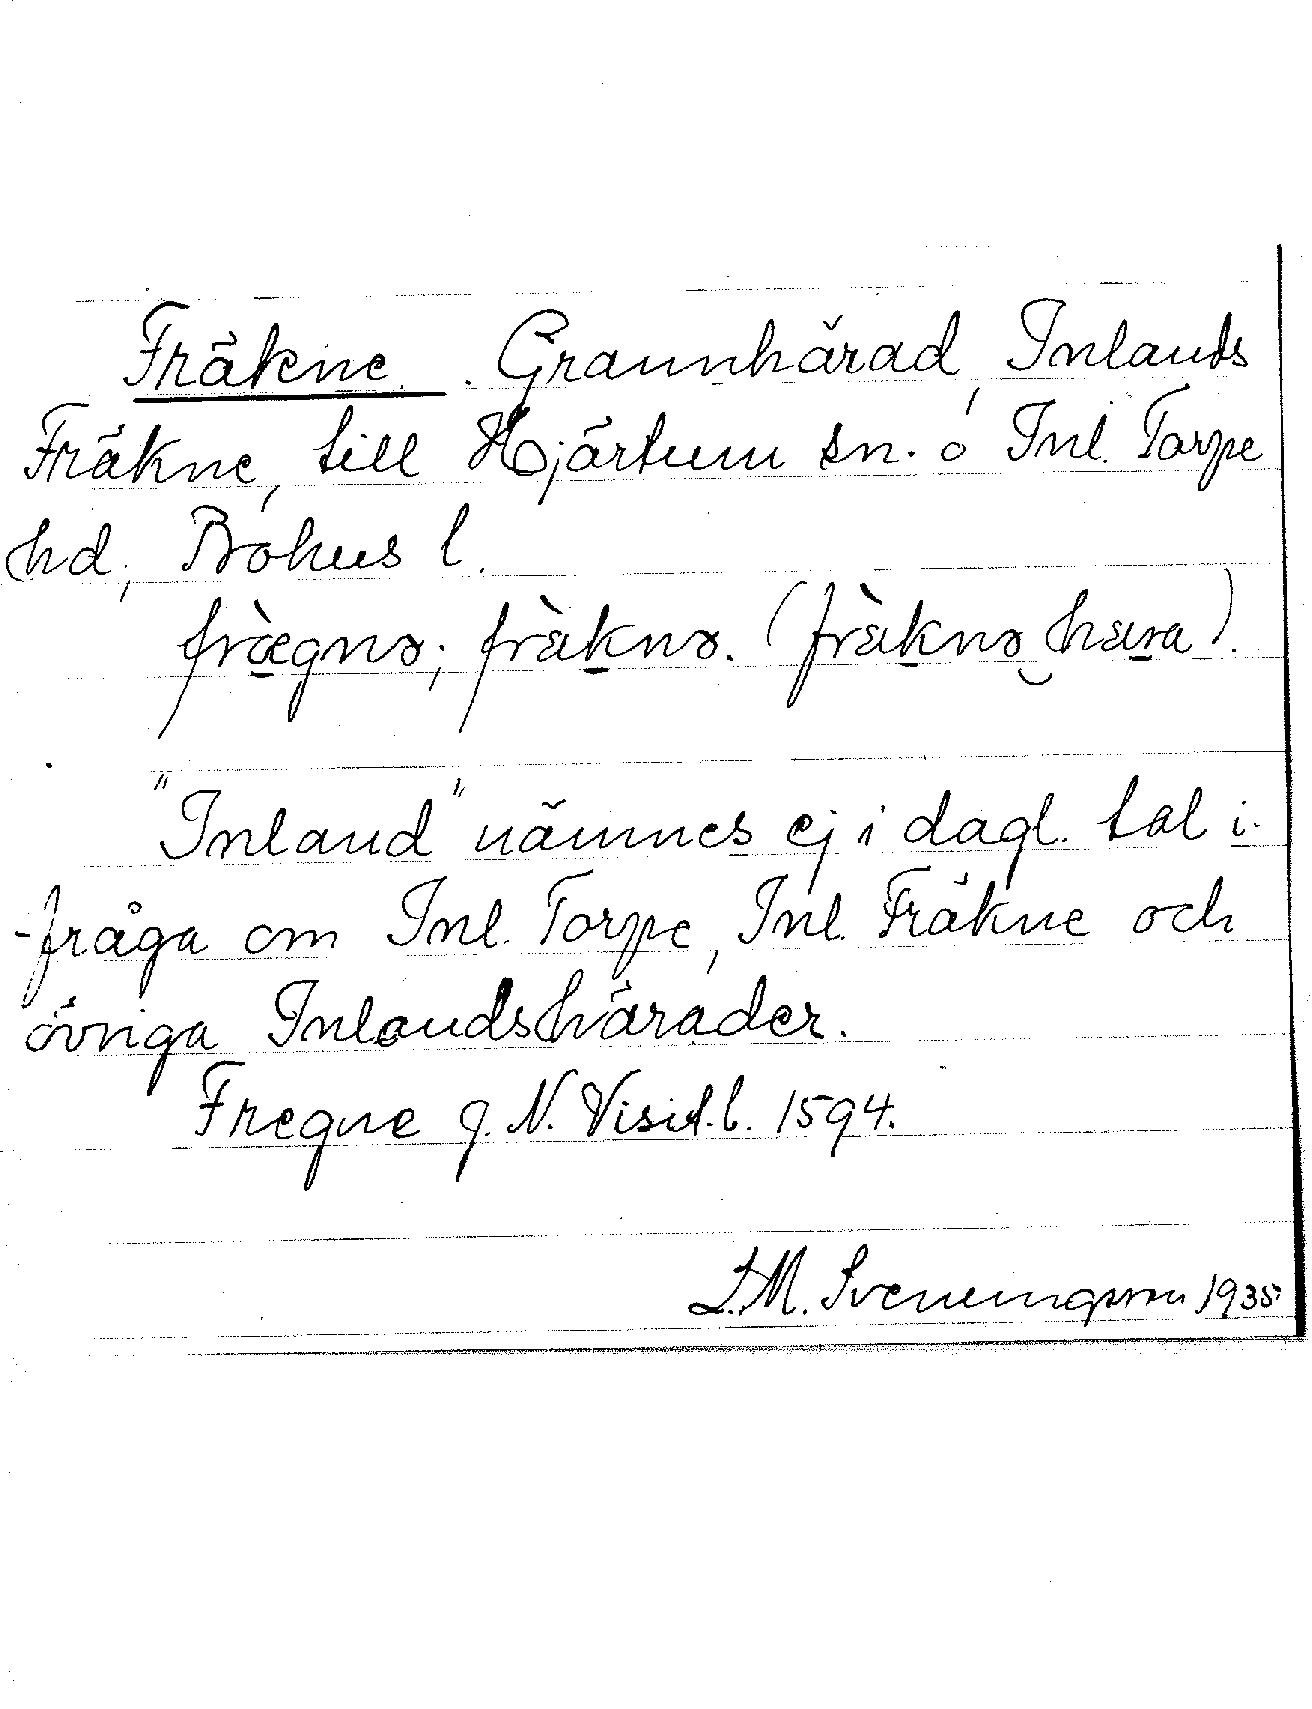 Fräkne. Grannhärad, Inlands
Fräkne, till Hjärtum sn. o Inl. Torpe
hd, Bohus l.
fræ̀gnə; fràknə. (fràknə‿hæra).
"Inland" nämnes ej i dagl. tal i-
-fråga om Inl. Torpe, Inl. Fräkne och
övriga Inlandshärader.
Fregne g. N. Visit.b. 1594.
L.M. Svenungsson 1935